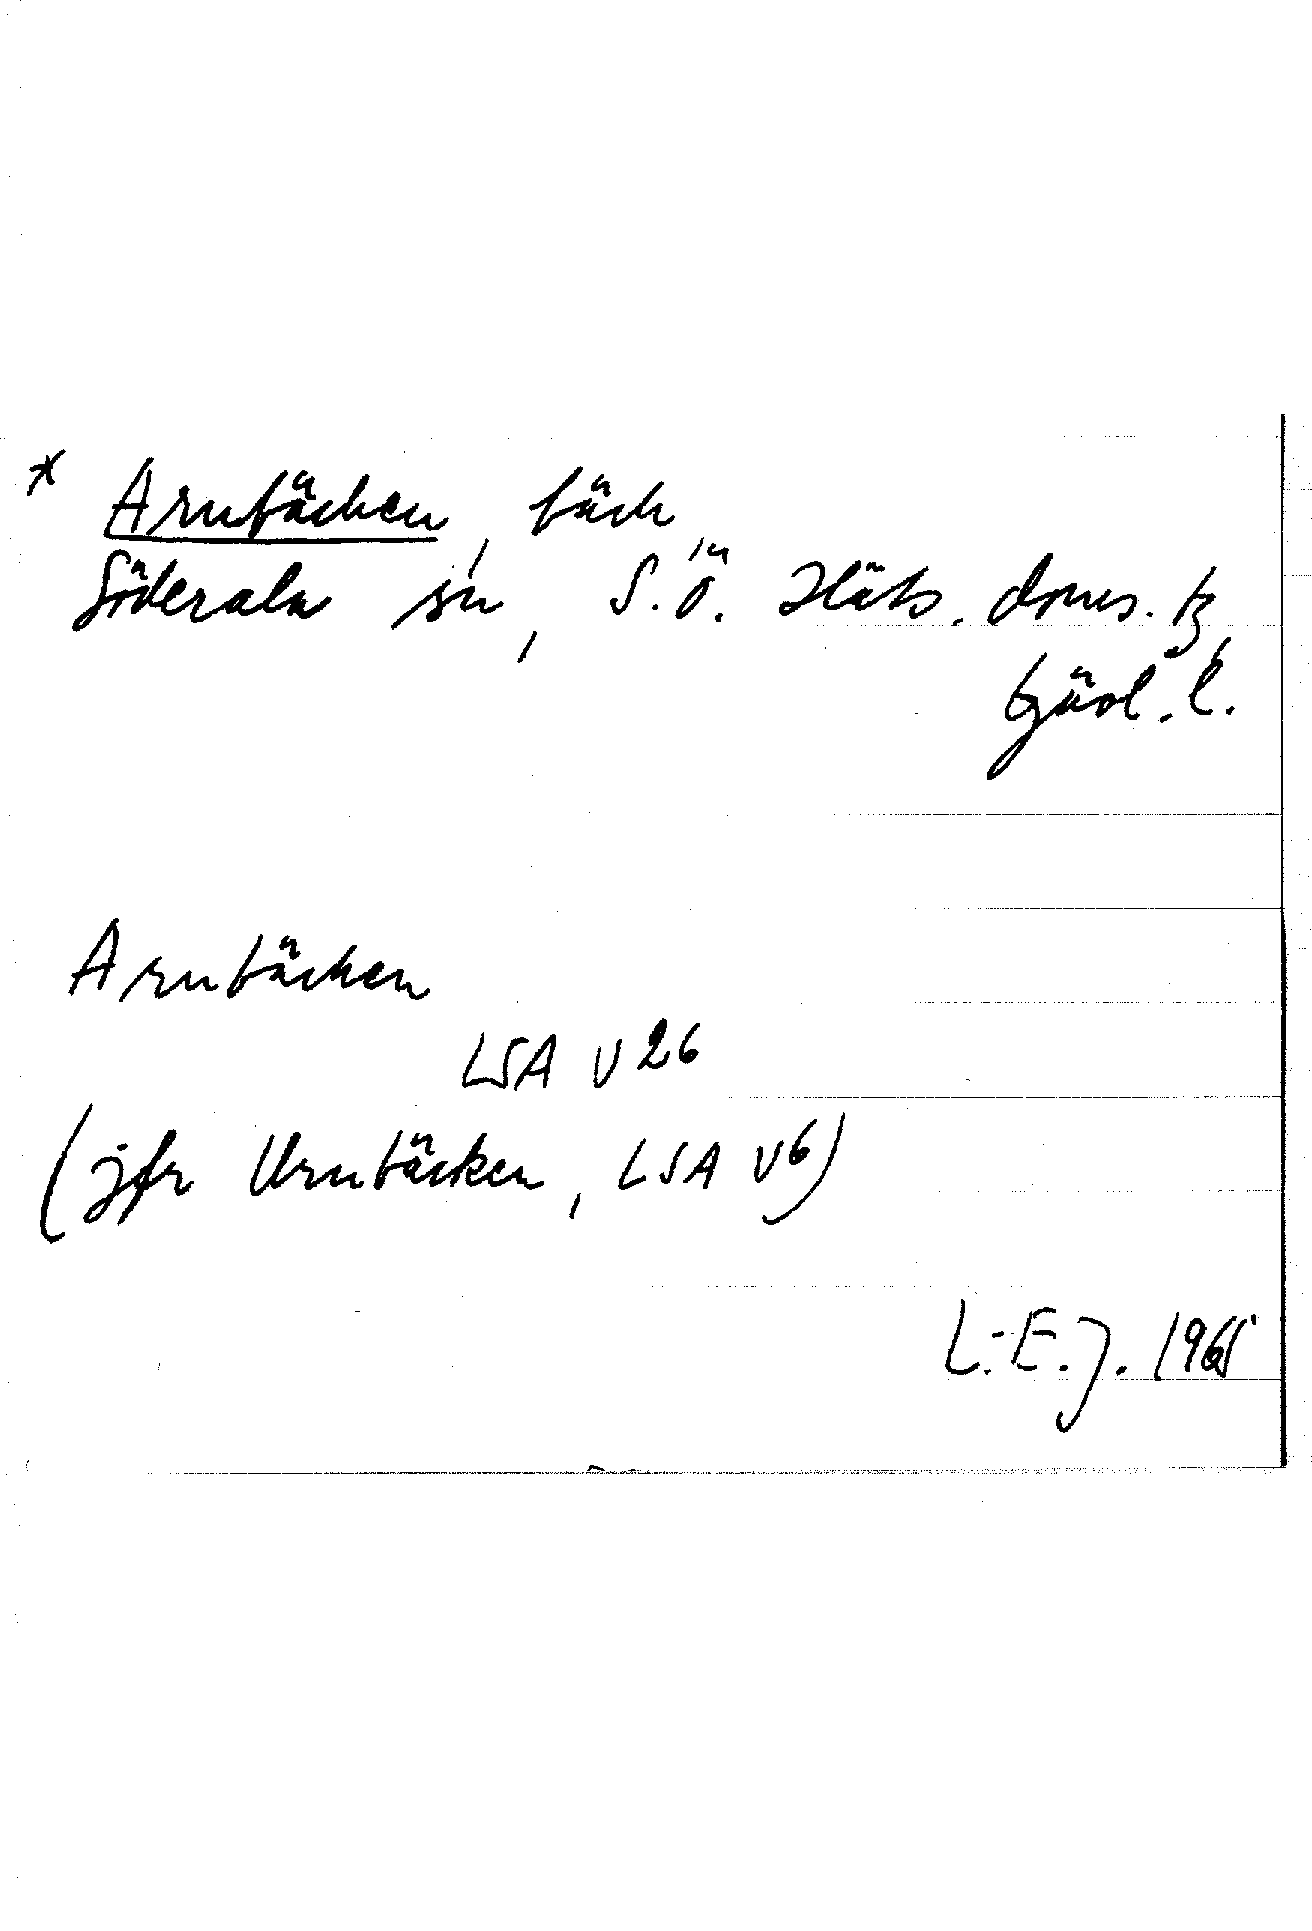 * Arnbäcken, bäck
Söderala sn, S.Ö. Häls. doms. tg,
Gävl. l.
Arnbäcken
LSA V 26
(jfr Urnbäcken, LSA V6)
L.-E. J. 1965